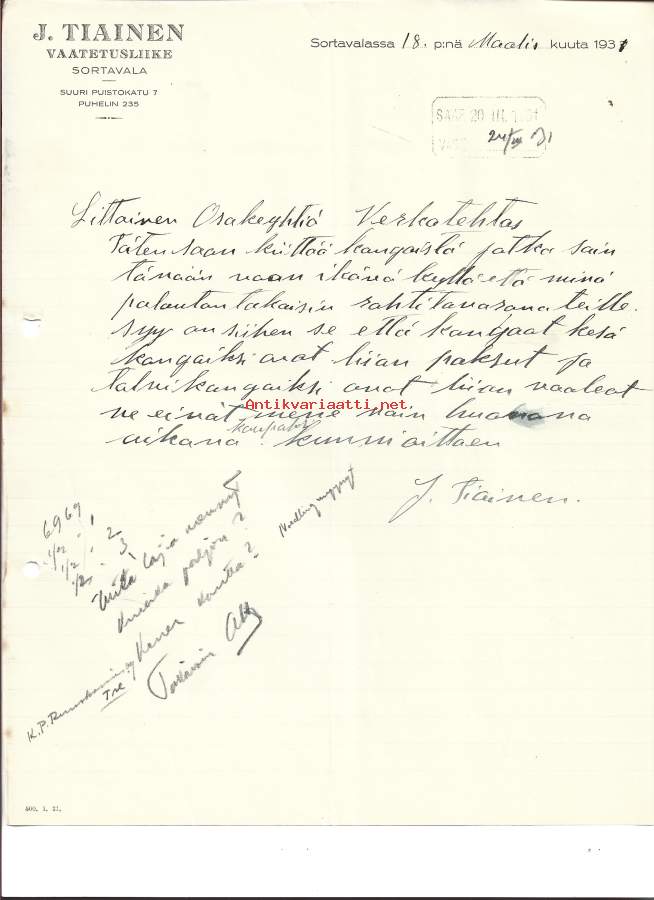 J. TIAINEN
VAATETUSLIIKE
SORTAVALA
SUURI PUISTOKATU 7
PUHELIN 235
Sortavalassa 18. p:nä Maalis kuuta 1931
SAAP. 20 III. 1931
24/III 31
Littoinen Osakeyhtiö Verkatehtas
Täten saan kiittää kangaista jotka sain
tänään vaan ikävä kyllä että minä
palautan takaisin rahtitavarana teille.
syy on siihen se että kangaat kesä
kangaiksi ovat liian paksut ja
talvikangaiksi ovat liian vaaleat
ne eivät mene näin huonona
aikana kaupaksi. kunnioittaen
J. Tiainen.
Antikvariaatti.net
6969
1/2 - 1
1/2 - 2
1/2 - 3
Mitä lajia
kuinka paljon?
Kenen kautta?
K.P.
Tre
400. 1. 31.